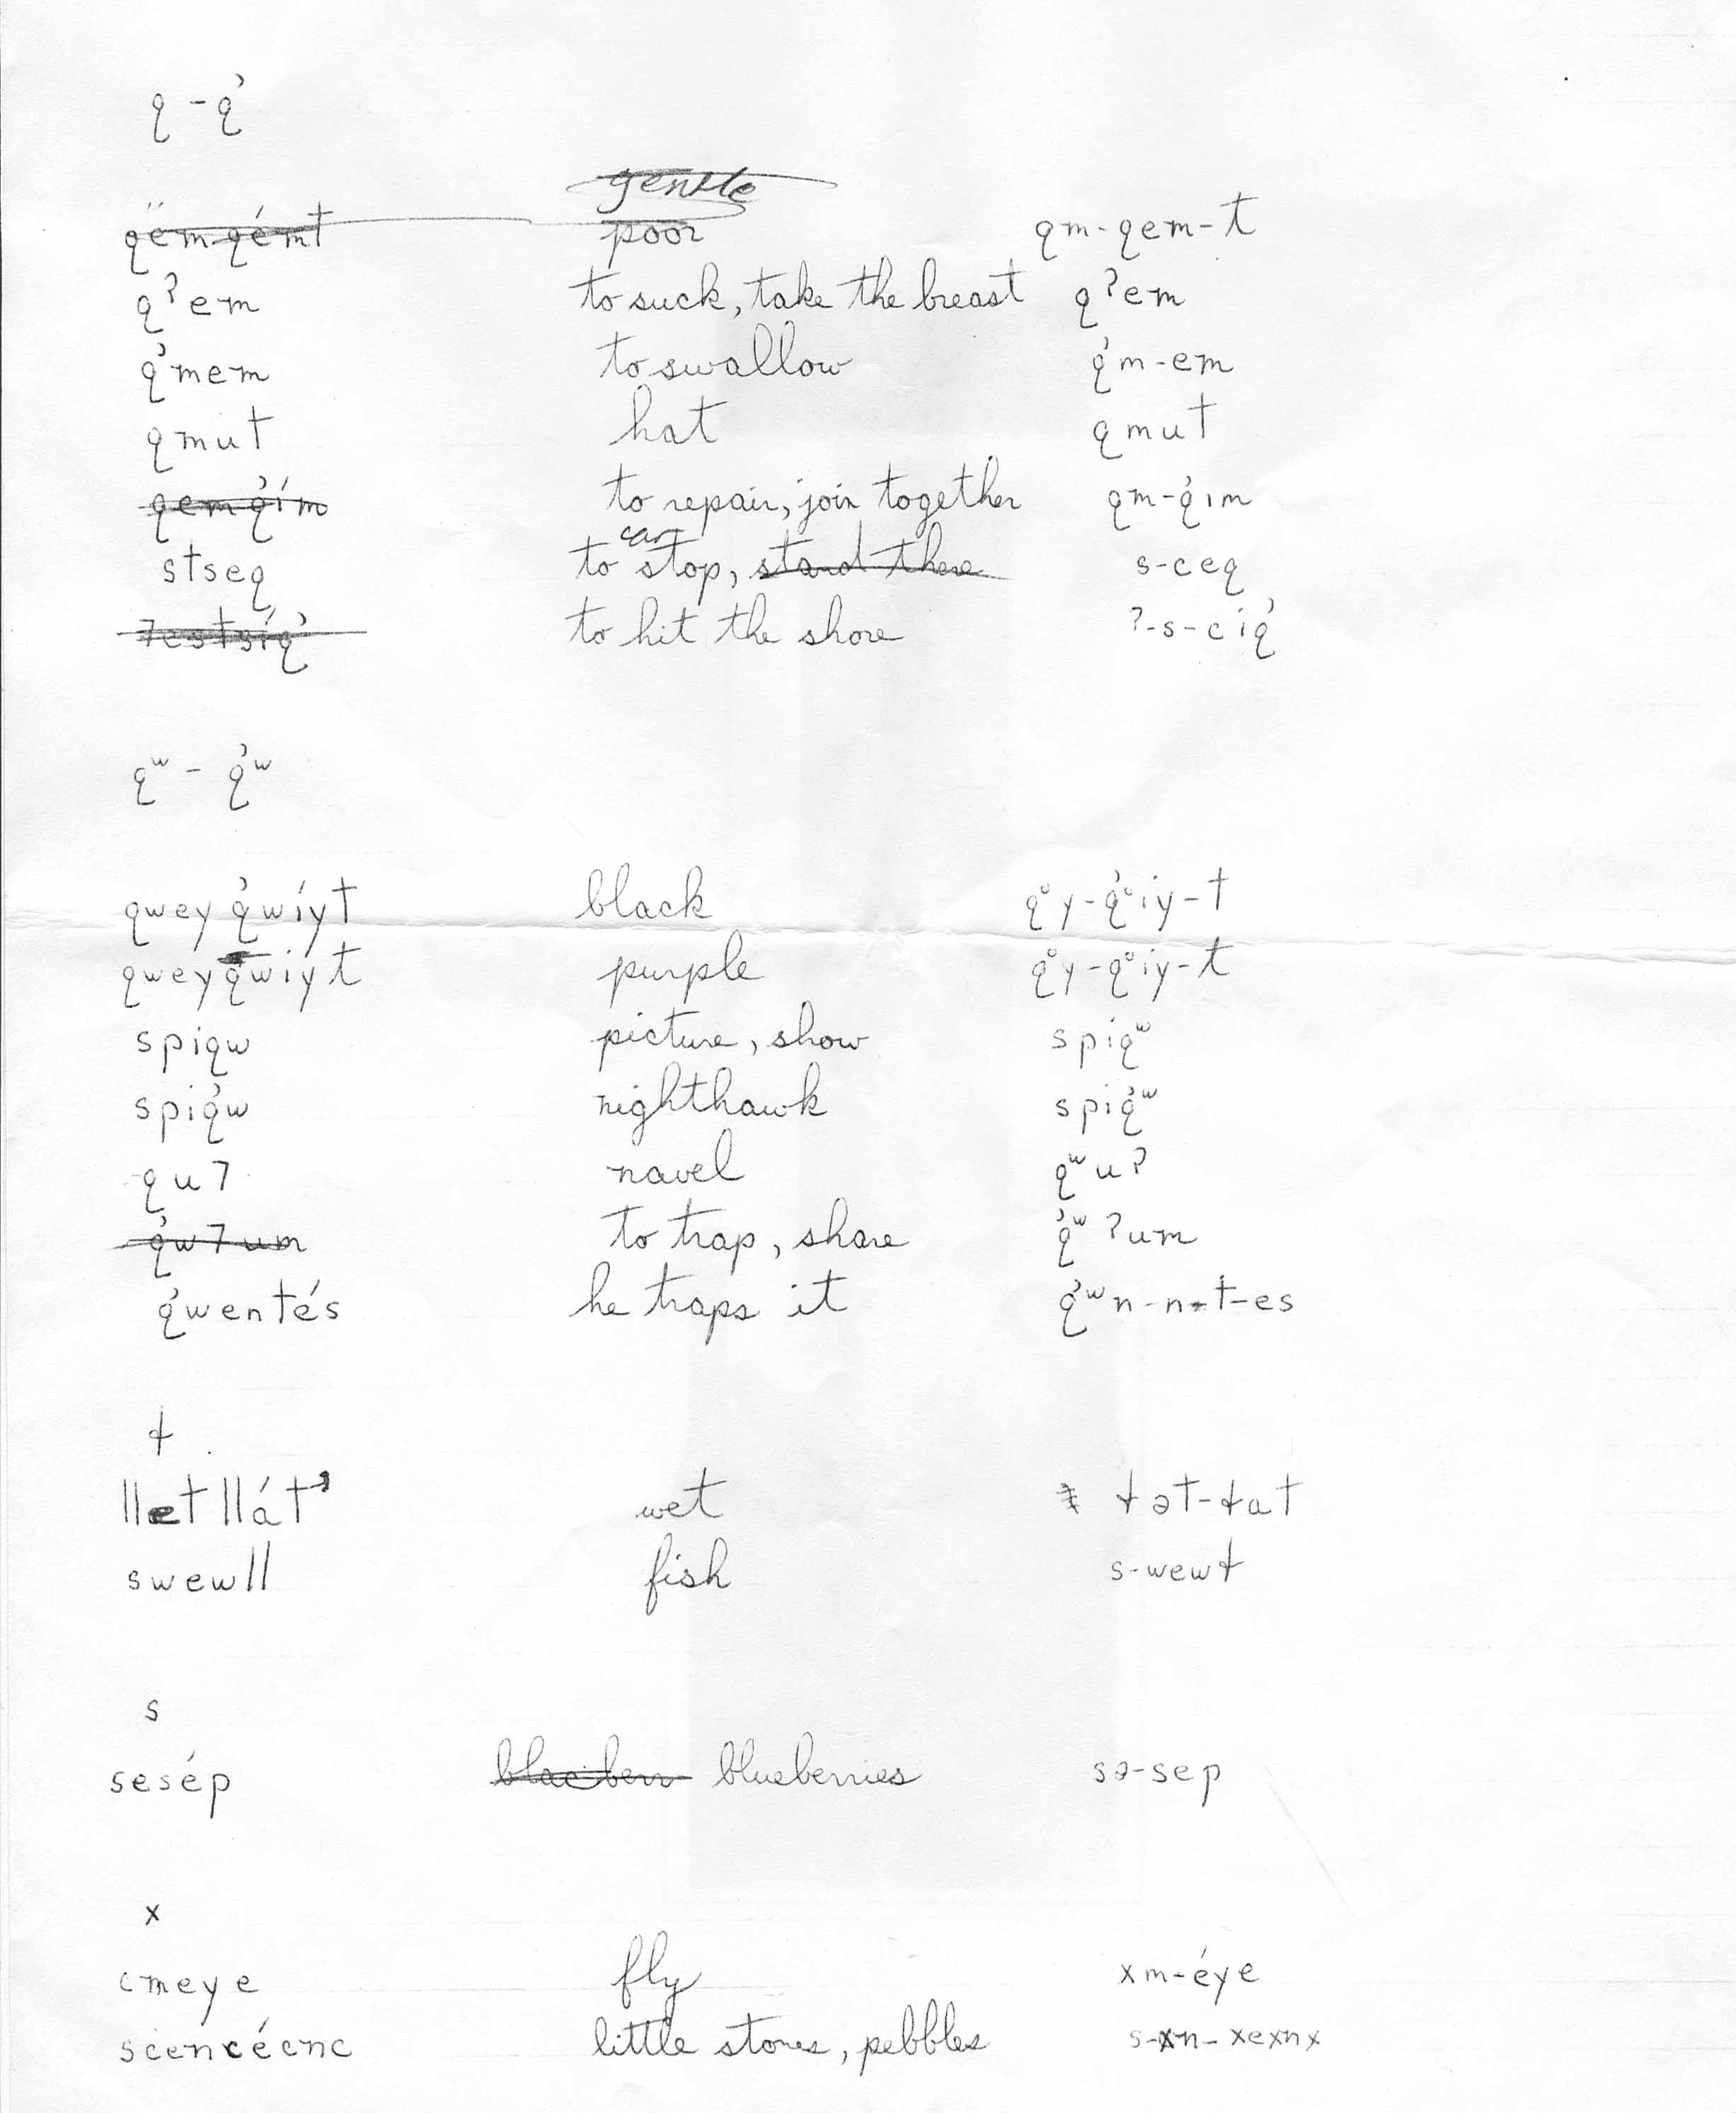 q - q̓
gentle
qem qémt poor qm-qem-t
qˀem to suck, take the breast qˀem
q̓mem to swallow q̓m-em
qmut hat qmut
qemq̓ím to repair, join together qm-q̓im
car
stseq to stop, stand there s-ceq
7estsíq̓ to hit the shore ʔ-s-ciq̓
qʷ - q̓ʷ
qweyq̓wíyt black q°y-q̓°iy-t
qweyqwíyt purple q°y-q°iy-t
spiqw picture, show spiqʷ
spiq̓w nighthawk spiq̓ʷ
qu7 navel qʷuʔ
q̓w7um to trap, share q̓ʷʔum
q̓wentés he traps it q̓ʷn-n-t-es
ɬ
lletllát̓ wet ɬət-ɬat
swewll fish s-wewɬ
s
sesép blacberr blueberries sə-sep
x
cmeye fly xm-éye
scencécnc little stones, pebbles s-xn-xexnx